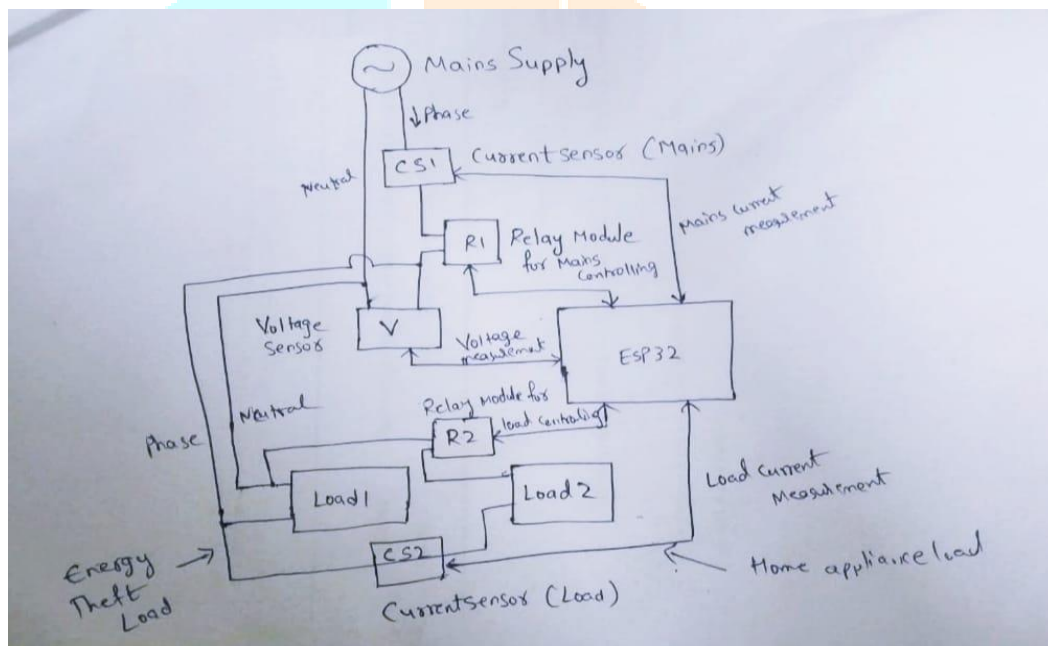 Mains Supply
Phase
Neutral
CS1
Current sensor (Mains)
Mains current
measurement
R1
Relay Module
for Mains
Controlling
Voltage
Sensor
V
Voltage
measurement
ESP32
Relay Module for
load controling
R2
Neutral
Phase
Load1
Load 2
Load Current
Measurement
CS2
Energy
Theft
Load
Home appliance load
Current sensor (Load)